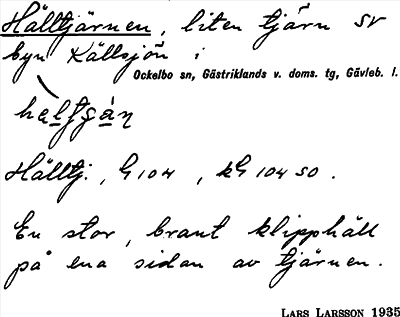 Hälltjärnen, liten tjärn SV
byn Källsjön i
Ockelbo sn, Gästriklands v. doms. tg, Gävleb. l.
Hälltj., G 104, kG 104 SO.
En stor, brant klipphäll
på ena sidan av tjärnen.
LARS LARSSON 1935